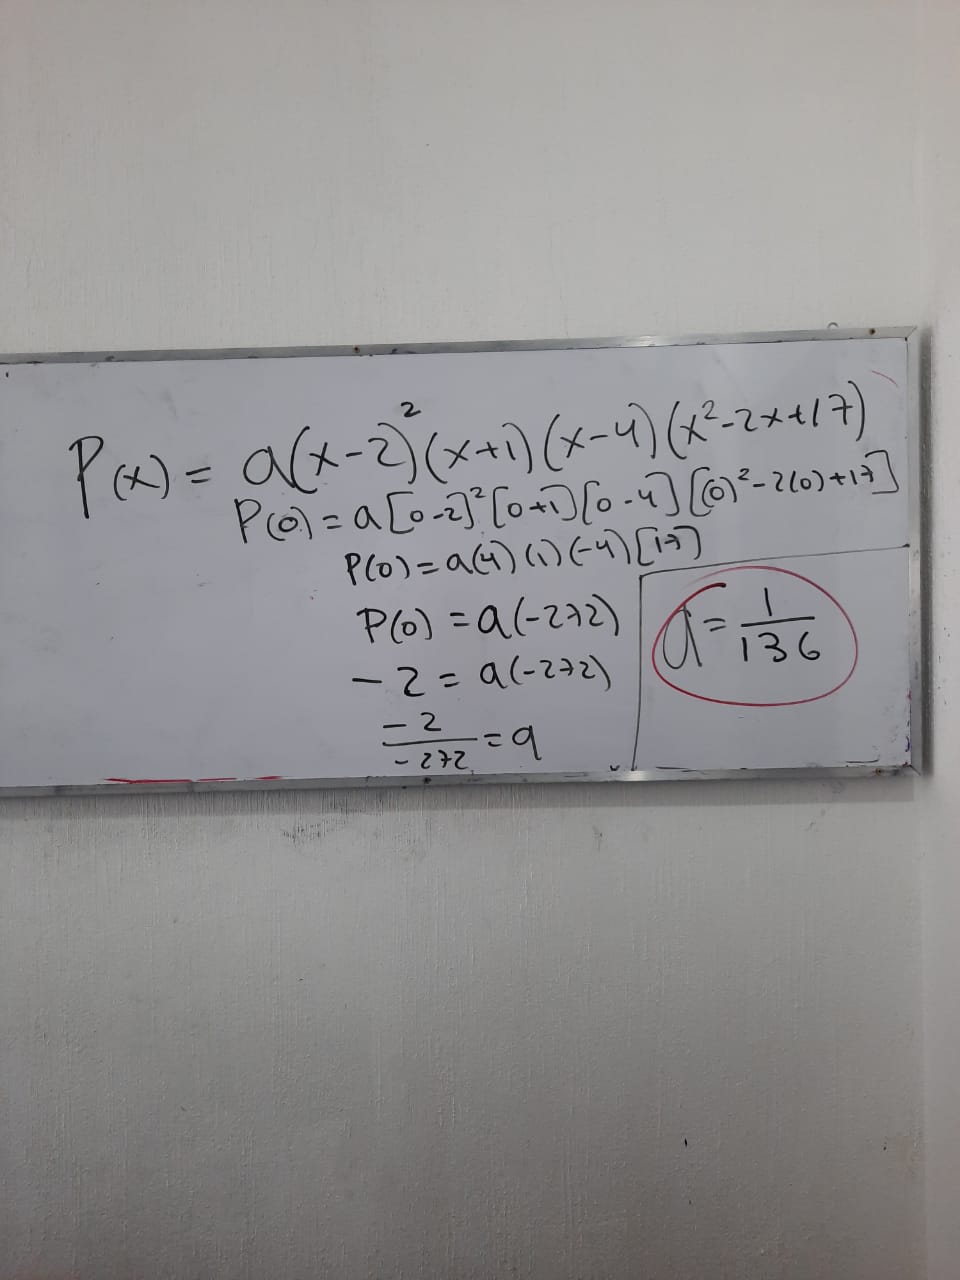 P(x) = a(x-2)²(x+1)(x-4)(x²-2x+17)
P(0) = a[0-2]²[0+1][0-4][(0)²-2(0)+17]
P(0) = a(4)(1)(-4)[17]
P(0) = a(-272)
-2 = a(-272)
-2/-272 = a
a = 1/136